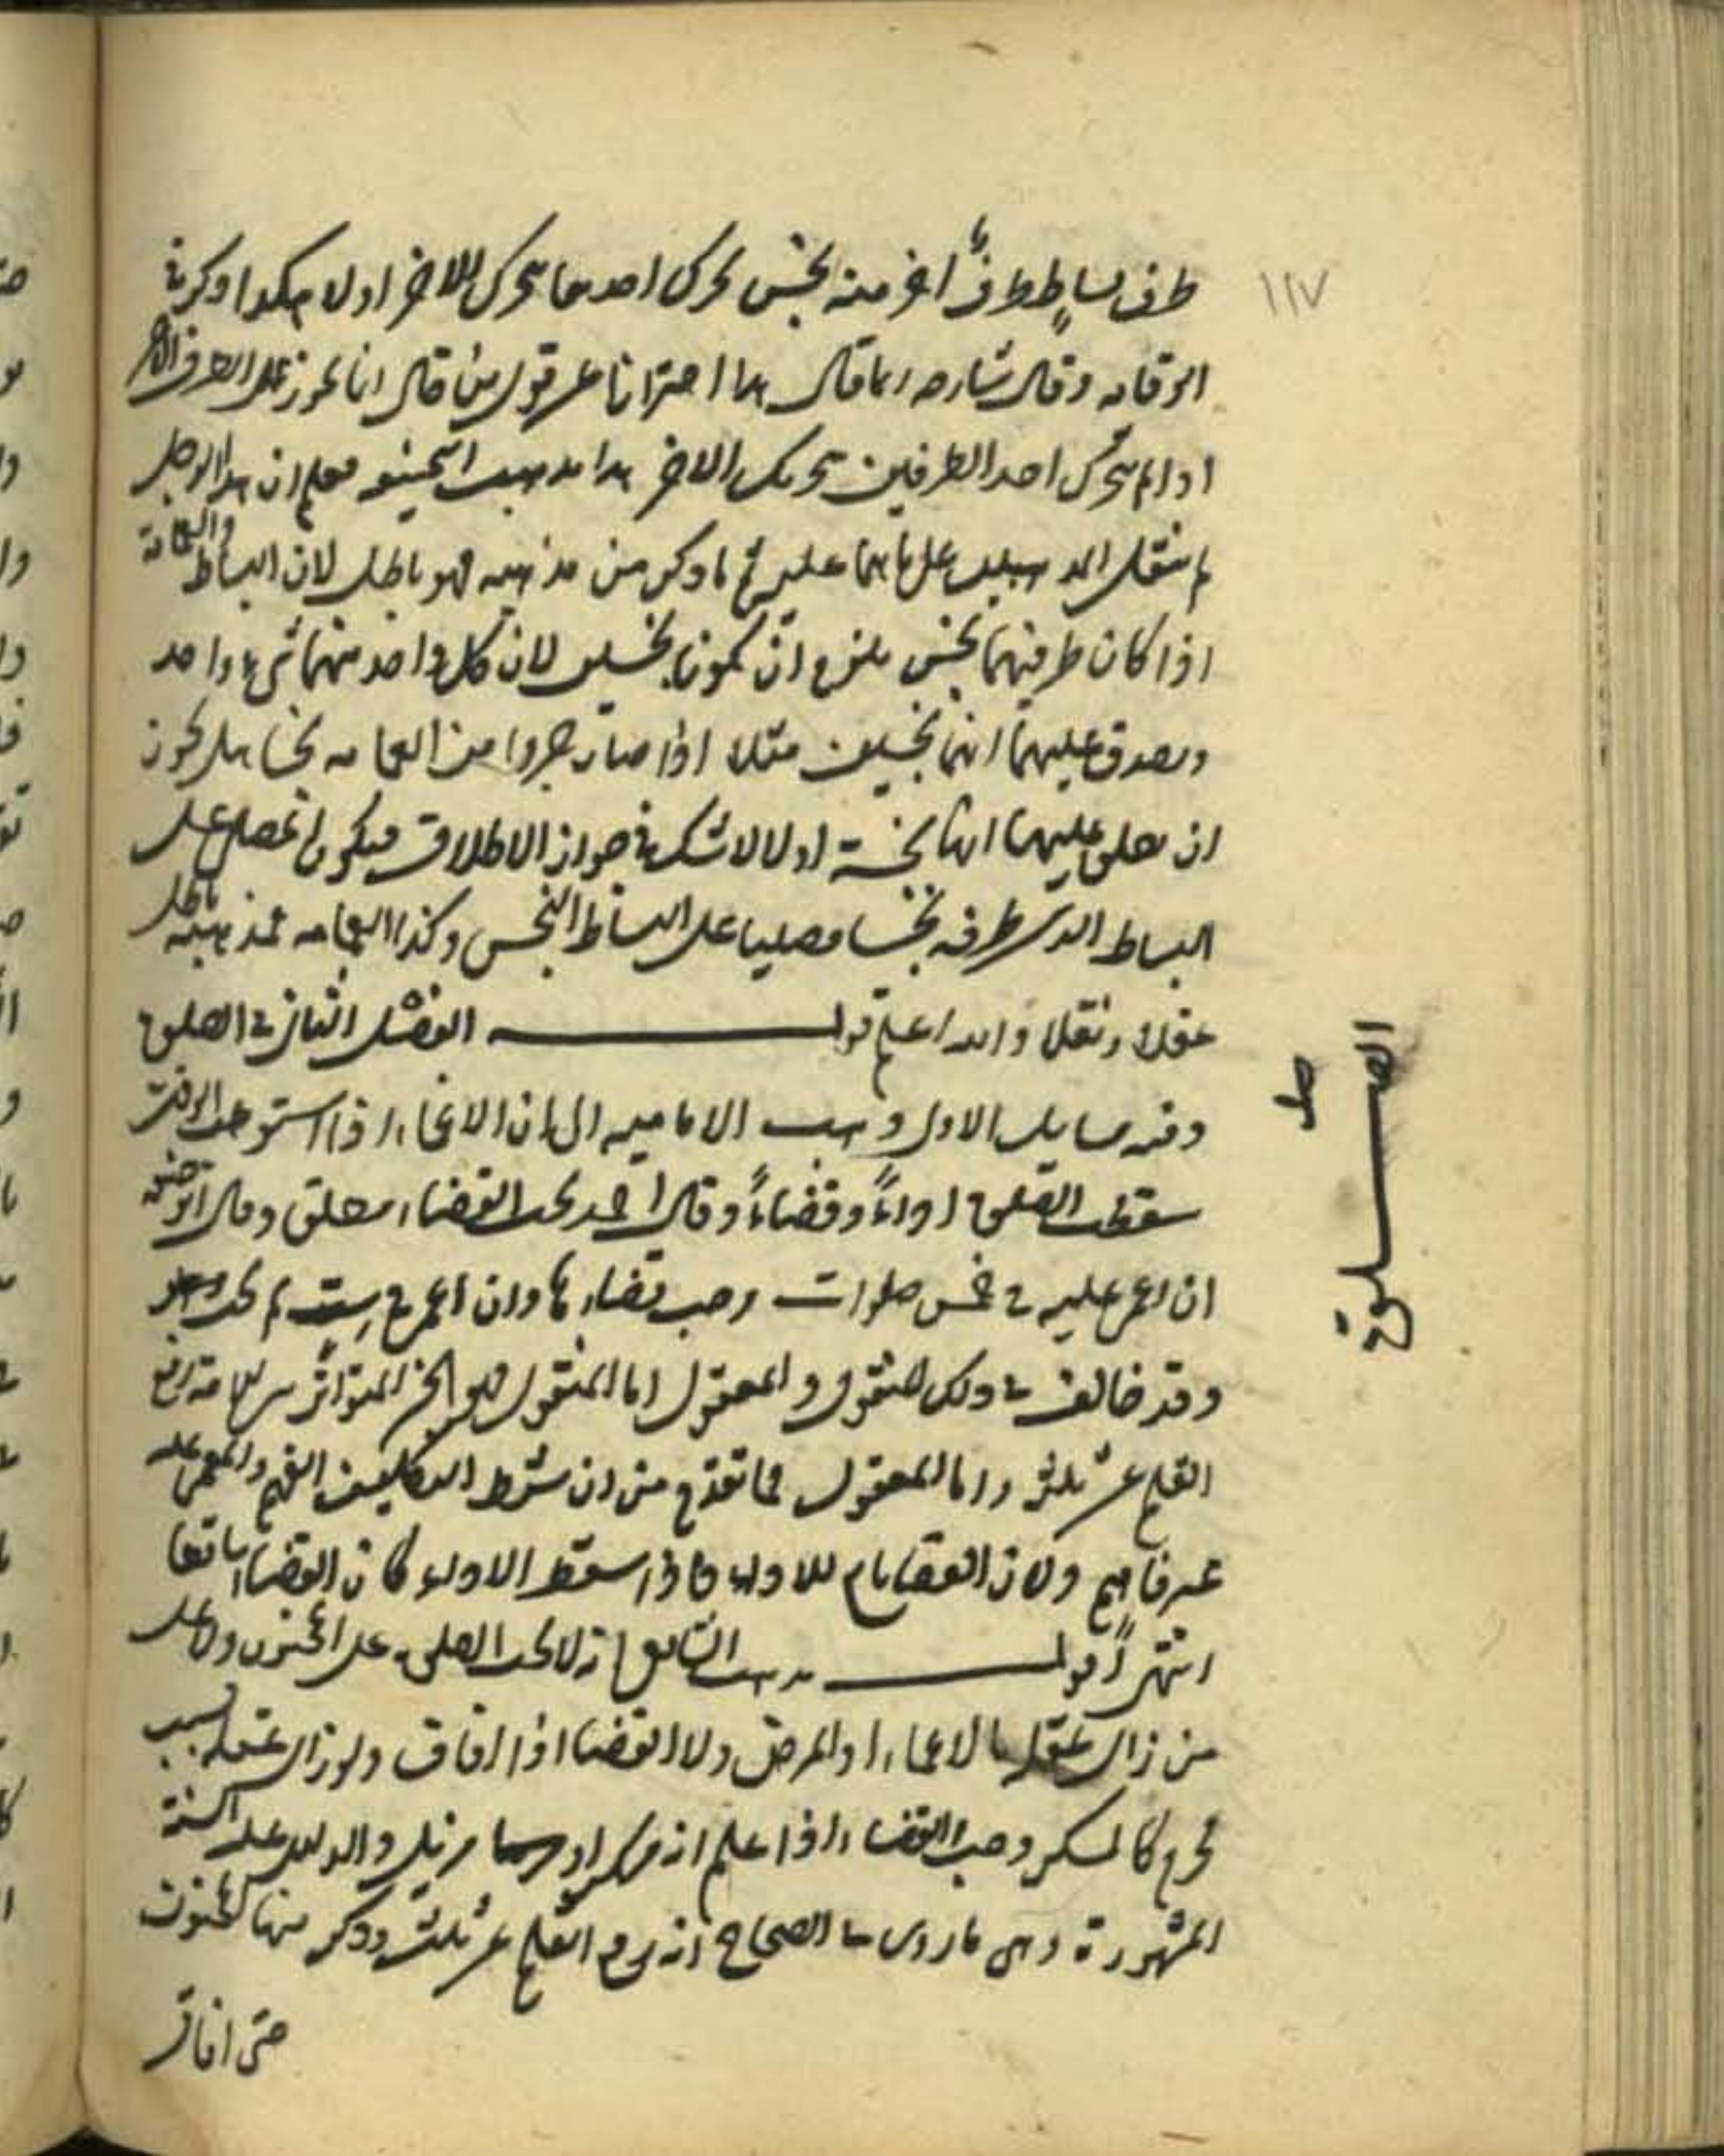 ١١٧
طرف بساط وطرف آخر منه نجس تحرك احدهما بتحرك الاخر اولا هكذا ذكر في
الوقايه وقال شارحه انما قال هذا احترازا عن قول من قال انما يجوز على الطرف الآخر
اذا لم يتحرك احد الطرفين بتحريك الاخر هذا مذهب الحنفيه فعلم ان هذا الرجل
لم ينقل المذهب على ما هما عليه ثم ما ذكر من مذهبه فهو باطل لان البساط والعمامة
اذا كان طرفيهما نجس يلزم ان يكونا نجسين لان كل واحد منهما شيء واحد
ويصدق عليهما انهما نجسين مثلا اذا صار جزءا من العمامه نجسا هل يجوز
ان يطلق عليهما انها نجسة اولا لا شك في جواز الاطلاق فيكون المصلي على
البساط الذي طرفه نجسا مصليا على البساط النجس وكذا العمامه فمذهبه باطل
عقلا ونقلا والله اعلم قول الفصل الثاني في الصلوة
وفيه مسايل الاول ذهب الاماميه الى ان الاغماء اذا استوعب الوقت
سقطت الصلوة اداءً وقضاءً وقال احمد يجب القضاء مطلق وقال ابو حنيفه
ان اغمي عليه في خمس صلوات وجب قضاءها وان اغمي في ست لم يجب
وقد خالف في ذلك المنقول والمعقول اما المنقول فهو الخبر المتواتر من رفع
القلم عن ثلث واما المعقول فما تقدم من ان شرط التكليف الفهم والمغمى عليه
غير فاهم ولان القضا تابع للاداء فاذا سقط الاداء كان القضاء ساقطا
انتهى اقول مذهب الشافعي انه لا تجب الصلوة على المجنون ولا على
من زال عقله بالاغماء او المرض ولا القضا اذا افاق ولو زال عقله بسبب
محرم كالسكر وجب القضاء اذا علم انه مسكر او مزيل والدليل عليه السنة
المشهورة وهي ما روى في الصحاح انه رفع القلم عن ثلث وذكر منها المجنون
حتى افاق
الصلوة